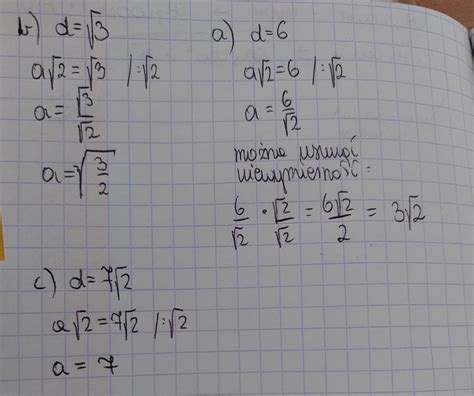 b) d=√3
a√2=√3 /:√2
a=√3/√2
a=√(3/2)
a) d=6
a√2=6 /:√2
a=6/√2
można usunąć
niewymierność:
6/√2 · √2/√2 = 6√2/2 = 3√2
c) d=7√2
a√2=7√2 /:√2
a=7